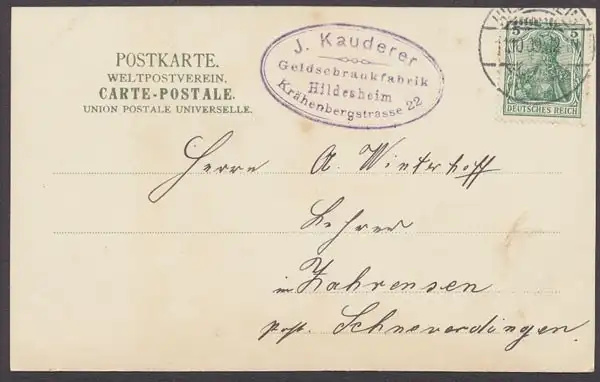 POSTKARTE.
WELTPOSTVEREIN.
CARTE-POSTALE.
UNION POSTALE UNIVERSELLE.
J. Kauderer
Geldschrankfabrik
Hildesheim
Krähenbergstrasse 22
5 5
DEUTSCHES REICH
Herrn A. Winterhoff
Lehrer
in Zahrensen
post. Schneverdingen.